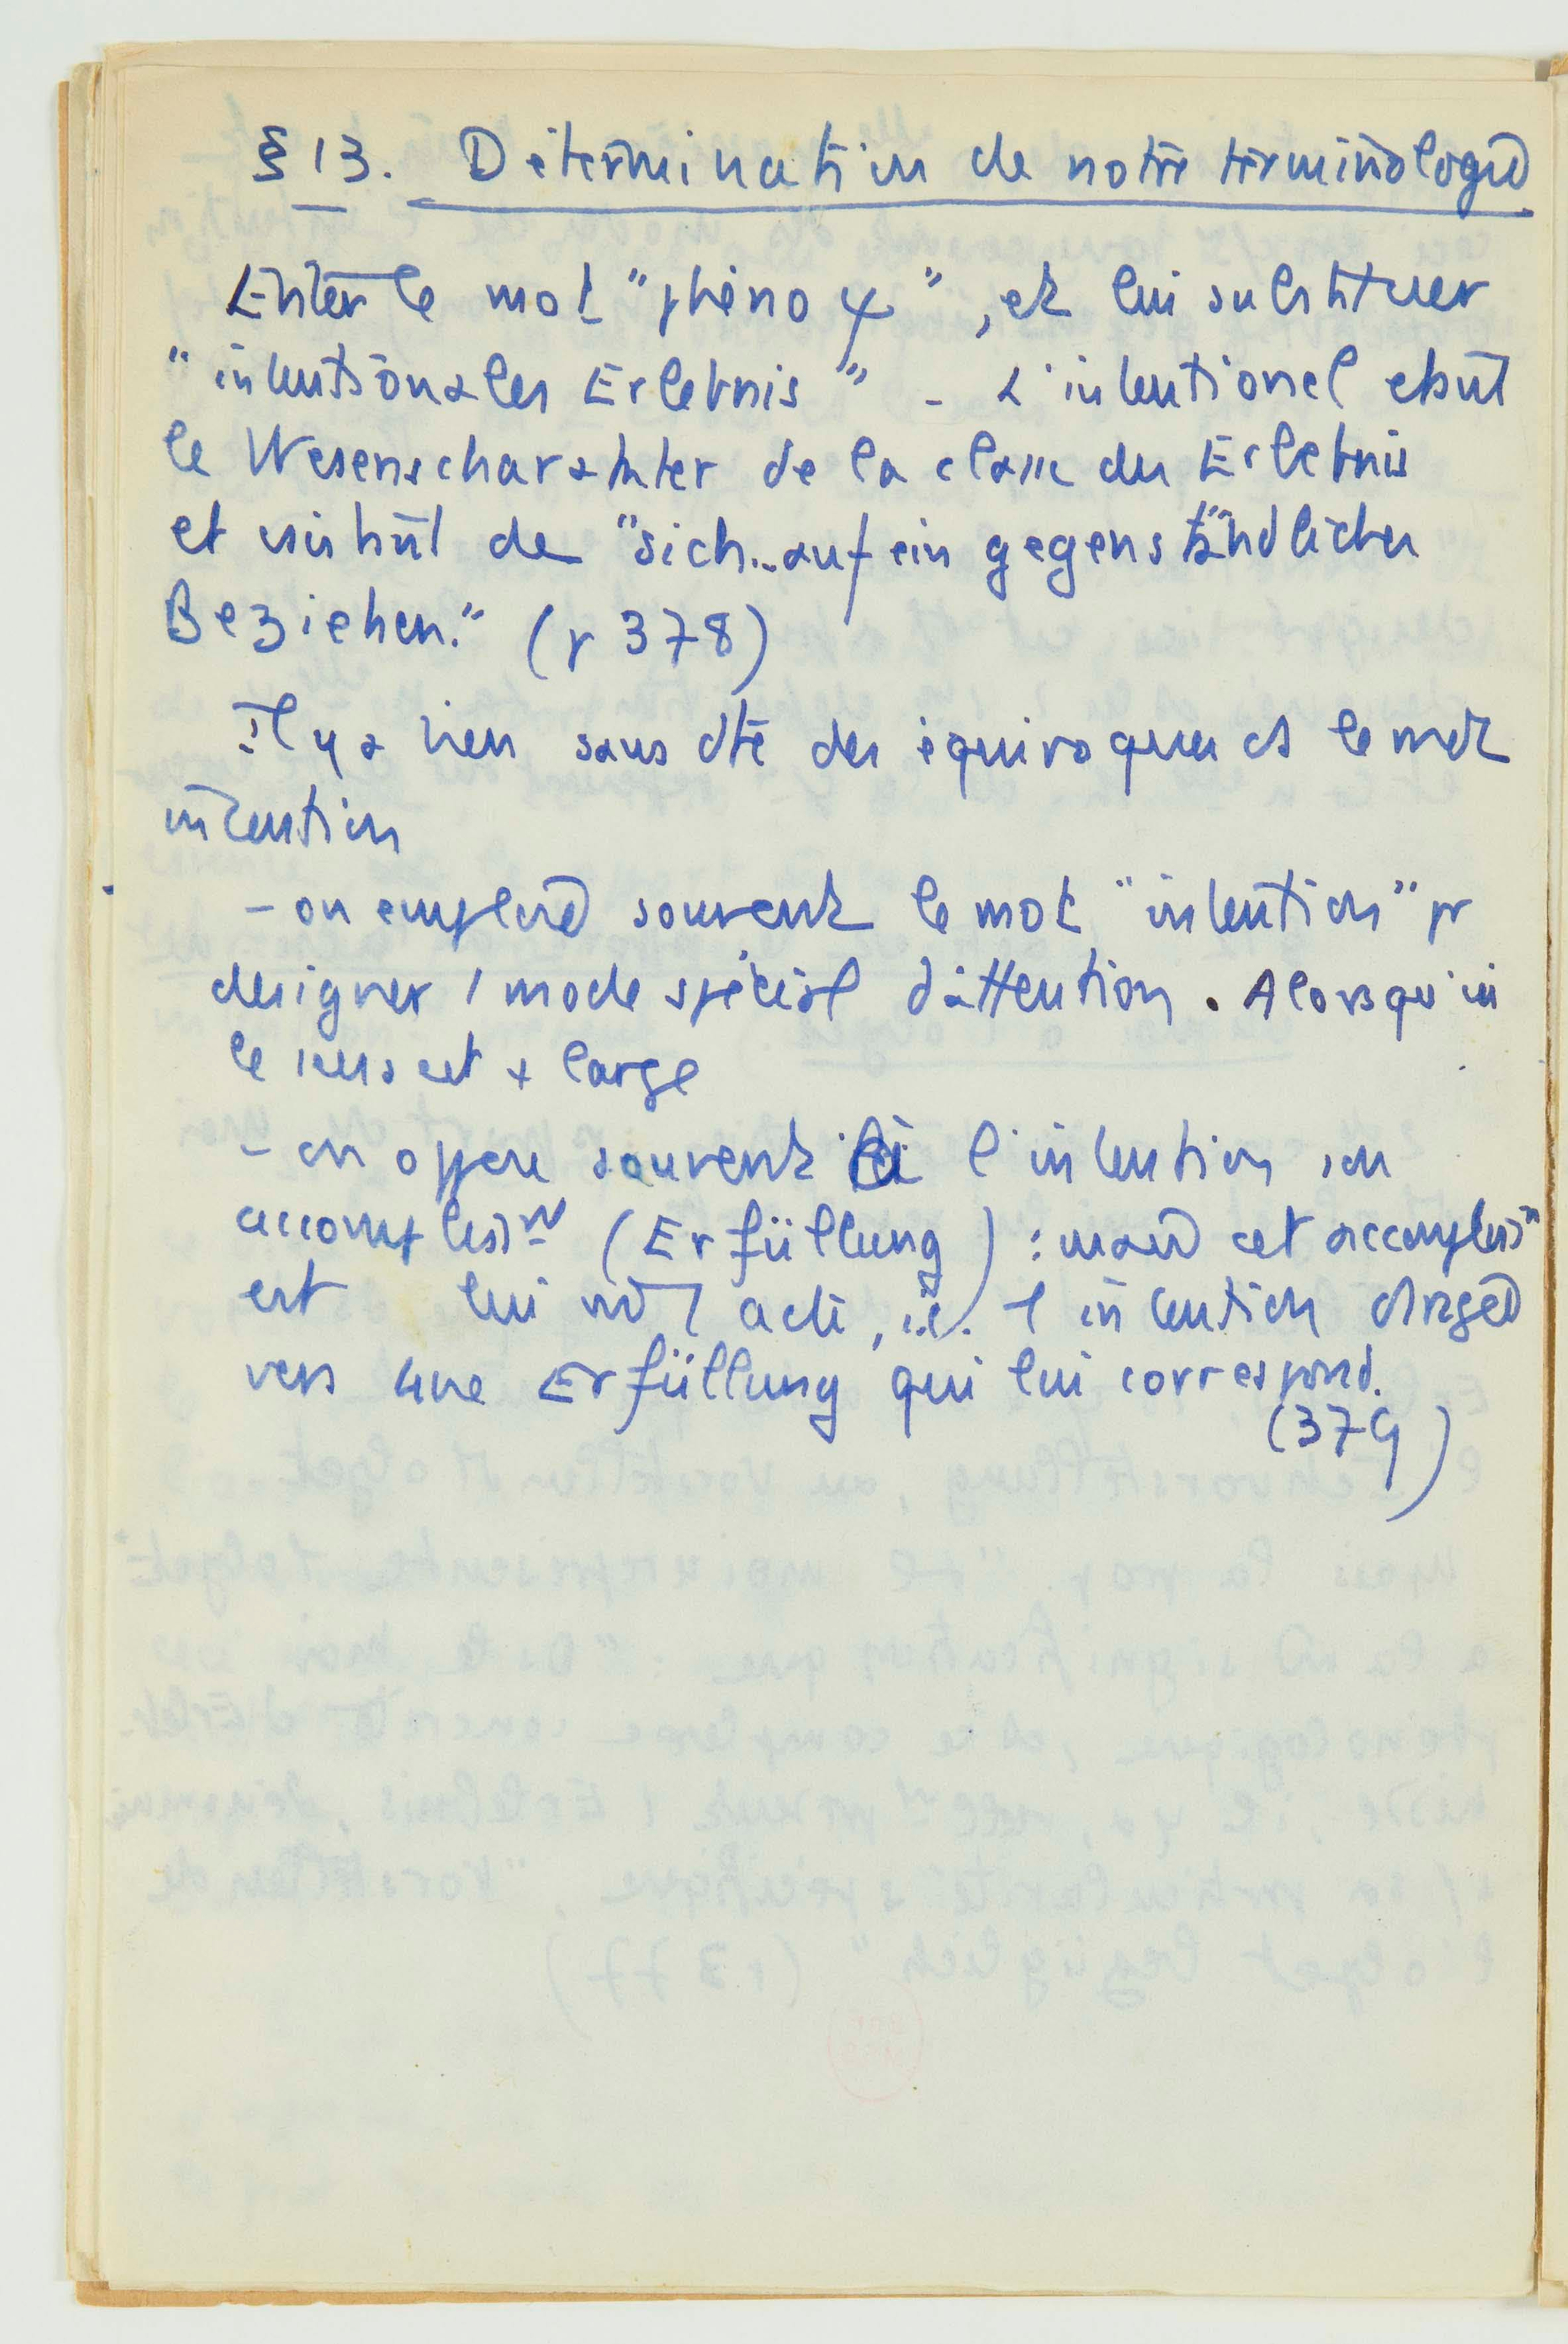 § 13. Détermination de notre terminologie
Eviter le mot "phéno ψ", et lui substituer
"intentionales Erlebnis" - L'intentionel étant
le Wesenscharakter de la classe des Erlebnis
et consistant de "sich... auf ein gegenständliches
Beziehen." (p 378)
il y a bien sans dte des équivoques ds le mot
intention
- on emploie souvent le mot "intention" pr
designer 1 mode spécial d'attention. Alors qu'ici
le sens est + large
- on oppose souvent à l'intention son
accompliss^nt (Erfüllung) : mais cet accompliss^nt
est lui 1 acte, i.e. 1 intention dirigée
vers une Erfüllung qui lui correspond.
(379)